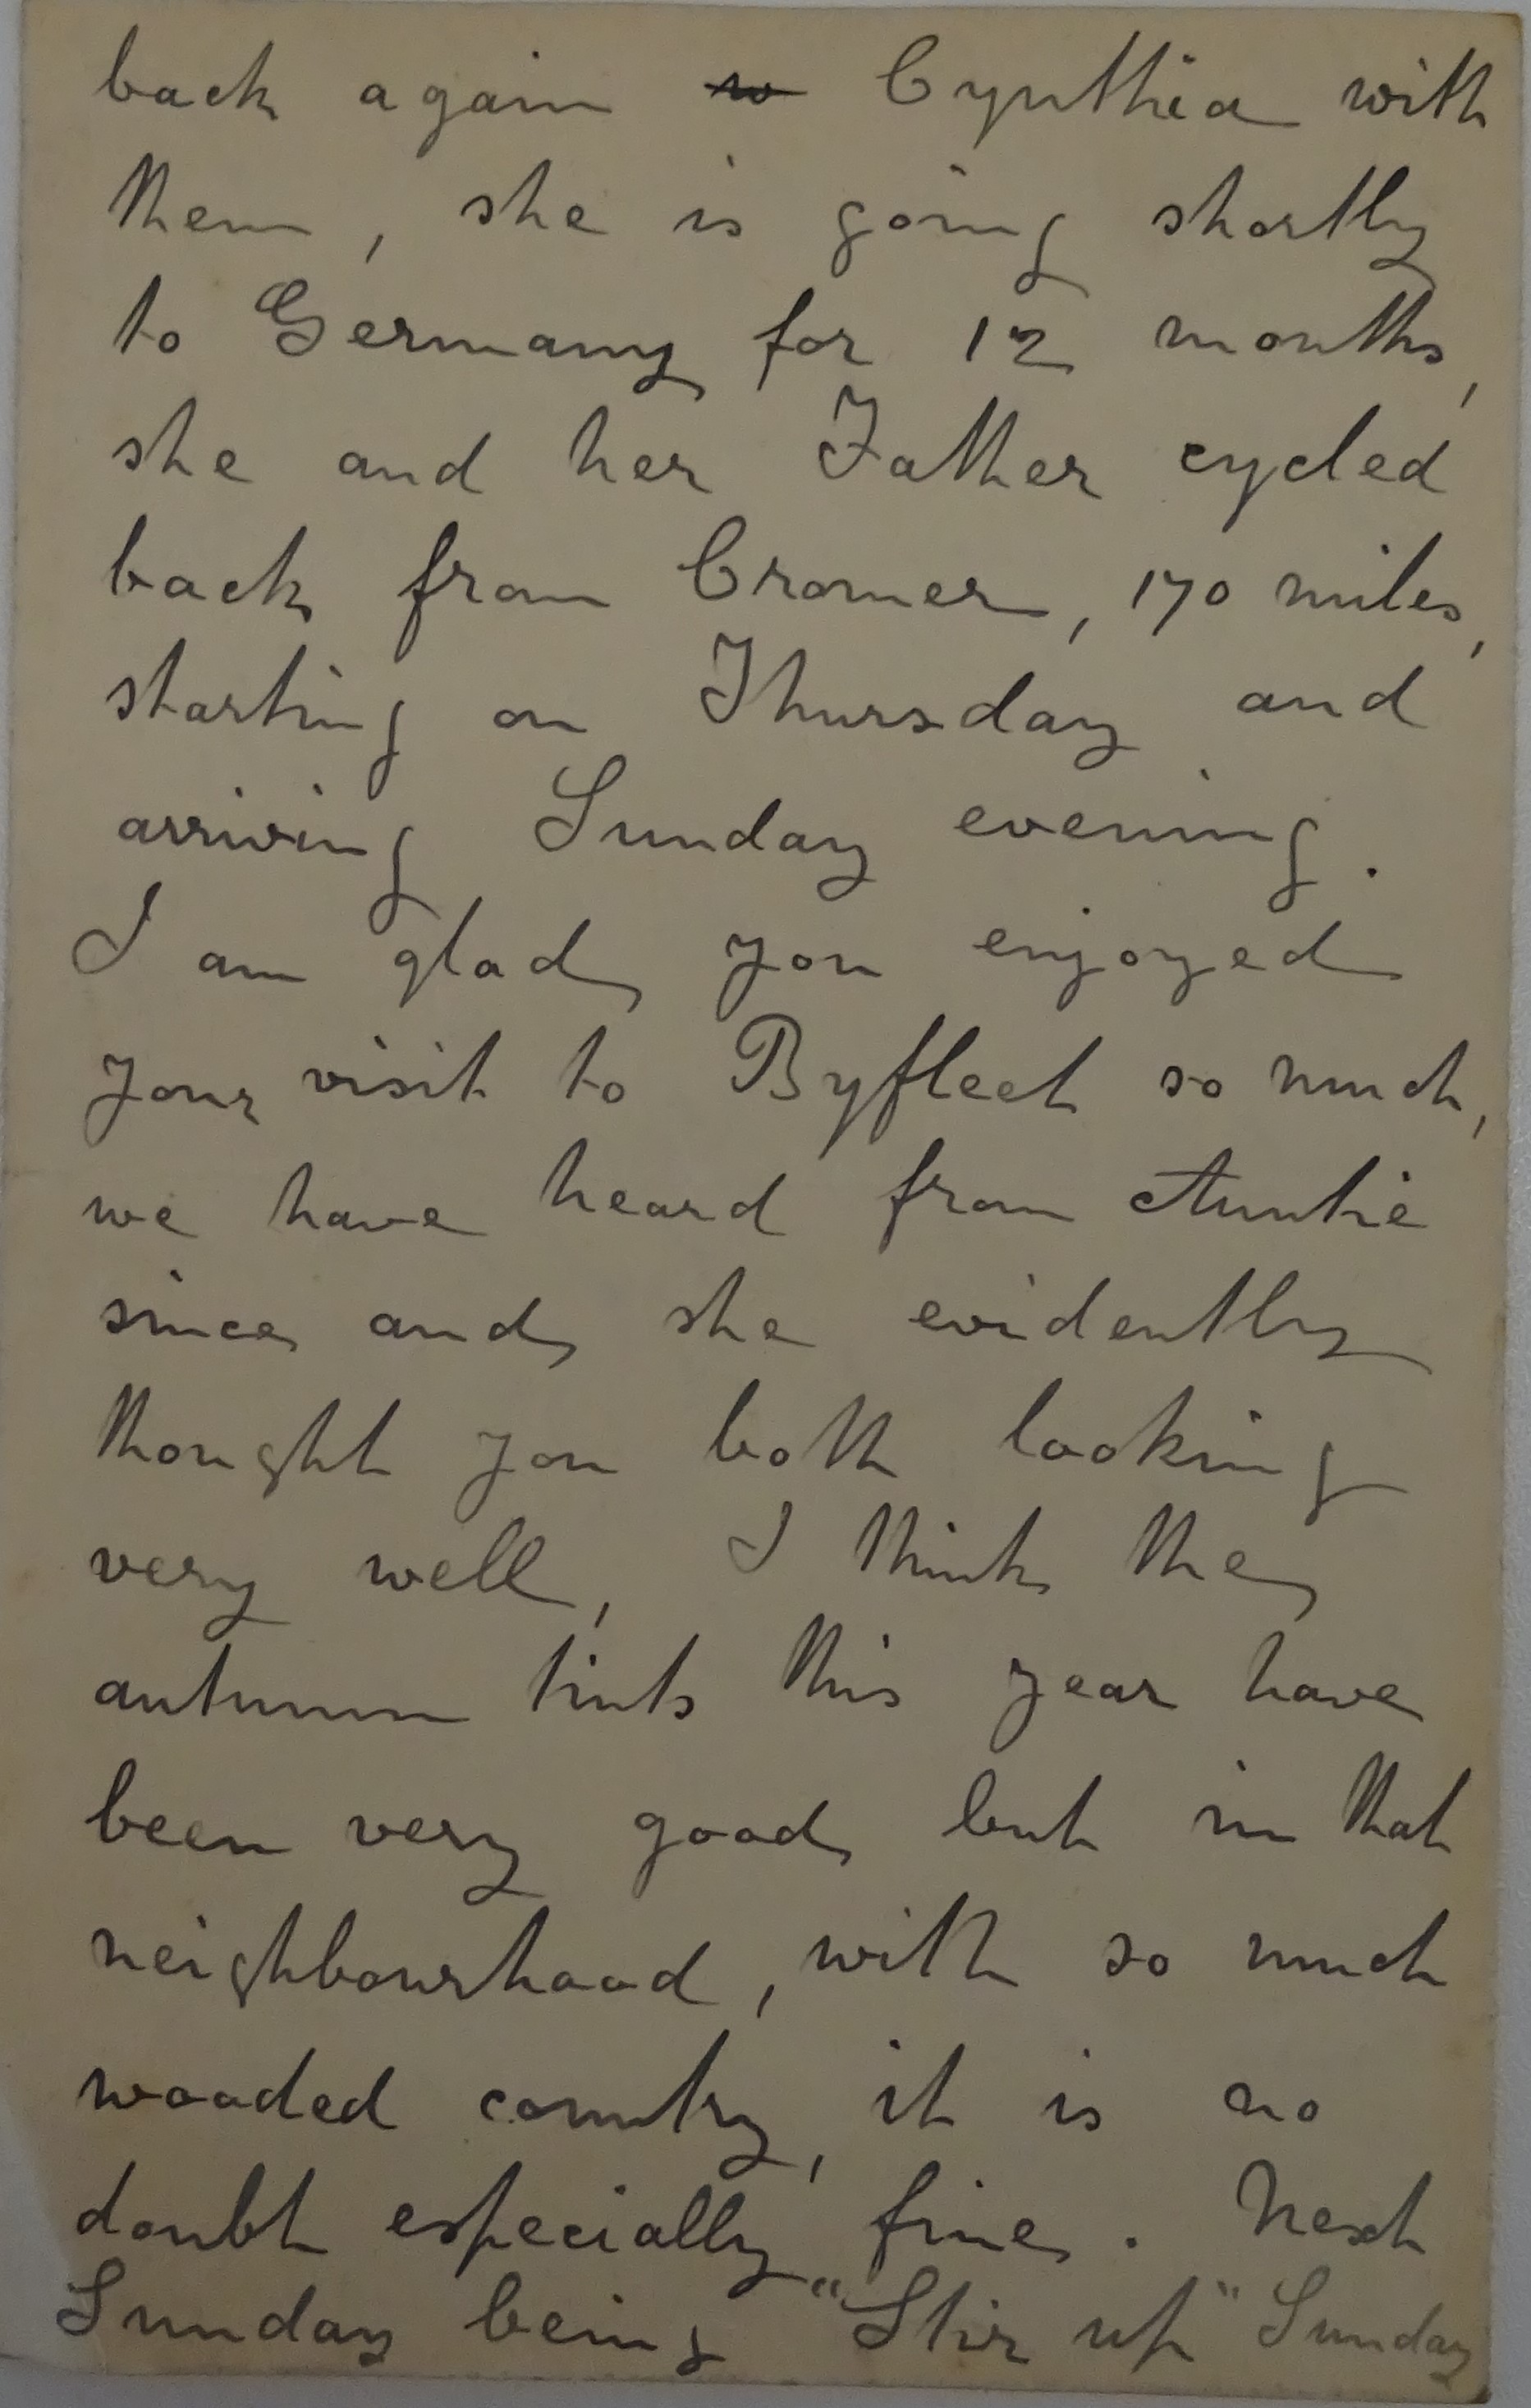 back again w Cynthia with
them, she is going shortly
to Germany for 12 months,
she and her Father cycled
back from Cromer, 170 miles,
starting on Thursday and
arriving Sunday evening.
I am glad you enjoyed
your visit to Byfleet so much,
we have heard from Auntie
since and she evidently
thought you both looking
very well, I think the
autumn tints this year have
been very good but in that
neighbourhood, with so much
wooded country, it is no
doubt especially fine. Next
Sunday being "Stir up" Sunday